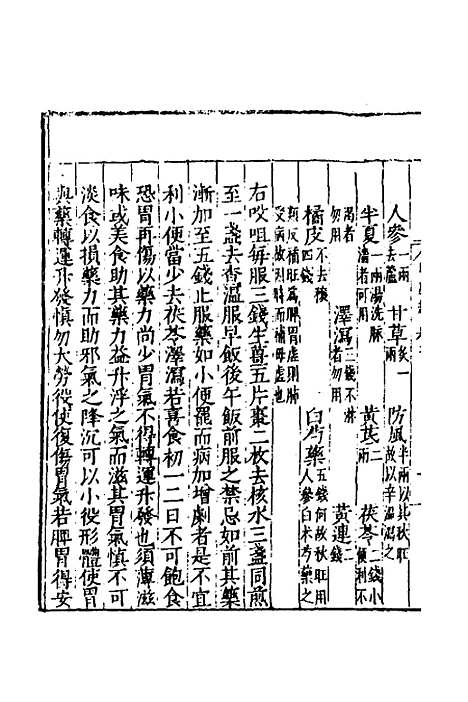 人參一兩去蘆 甘草炙一兩 防風半兩以其秋旺故以辛溫瀉之
半夏一兩湯洗脉澁者可用 黃芪二兩 茯苓二錢小便利不
渴者勿用 澤瀉三錢不淋者勿用 黃連二錢
橘皮不去穰四錢 白芍藥五錢何故秋旺用人參白术芍藥之
類反補旺爲脾胃虛則肺受病故因時而補毋虛也
右㕮咀每服三錢生薑五片棗二枚去核水三盞同煎
至一盞去查溫服早飯後午飯前服之禁忌如前其藥
漸加至五錢止服藥如小便罷而病加增劇者是不宜
利小便當少去茯苓澤瀉若喜食初一二日不可飽食
恐胃再傷以藥力尚少胃氣不得轉運升發也須薄滋
味或美食助其藥力益升浮之氣而滋其胃氣慎不可
淡食以損藥力而助邪氣之降沉可以小役形體使胃
與藥轉運升發慎勿大勞役使復傷胃氣若脾胃得安